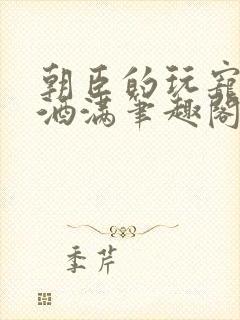 朝臣的玩宠
酒满笔趣阁
季芹